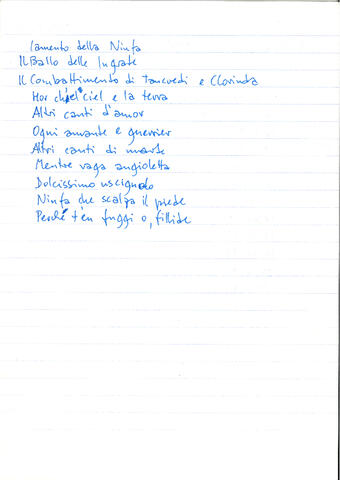 lamento della Ninfa
Il Ballo delle Ingrate
Il Combattimento di Tancredi e Clorinda
Hor ch'el ciel e la terra
Altri canti d'amor
Ogni amante e guerrier
Altri canti di marte
Mentre vaga angioletta
Dolcissimo uscignolo
Ninfa che scalza il piede
Perchè t'en fuggi o, fillide